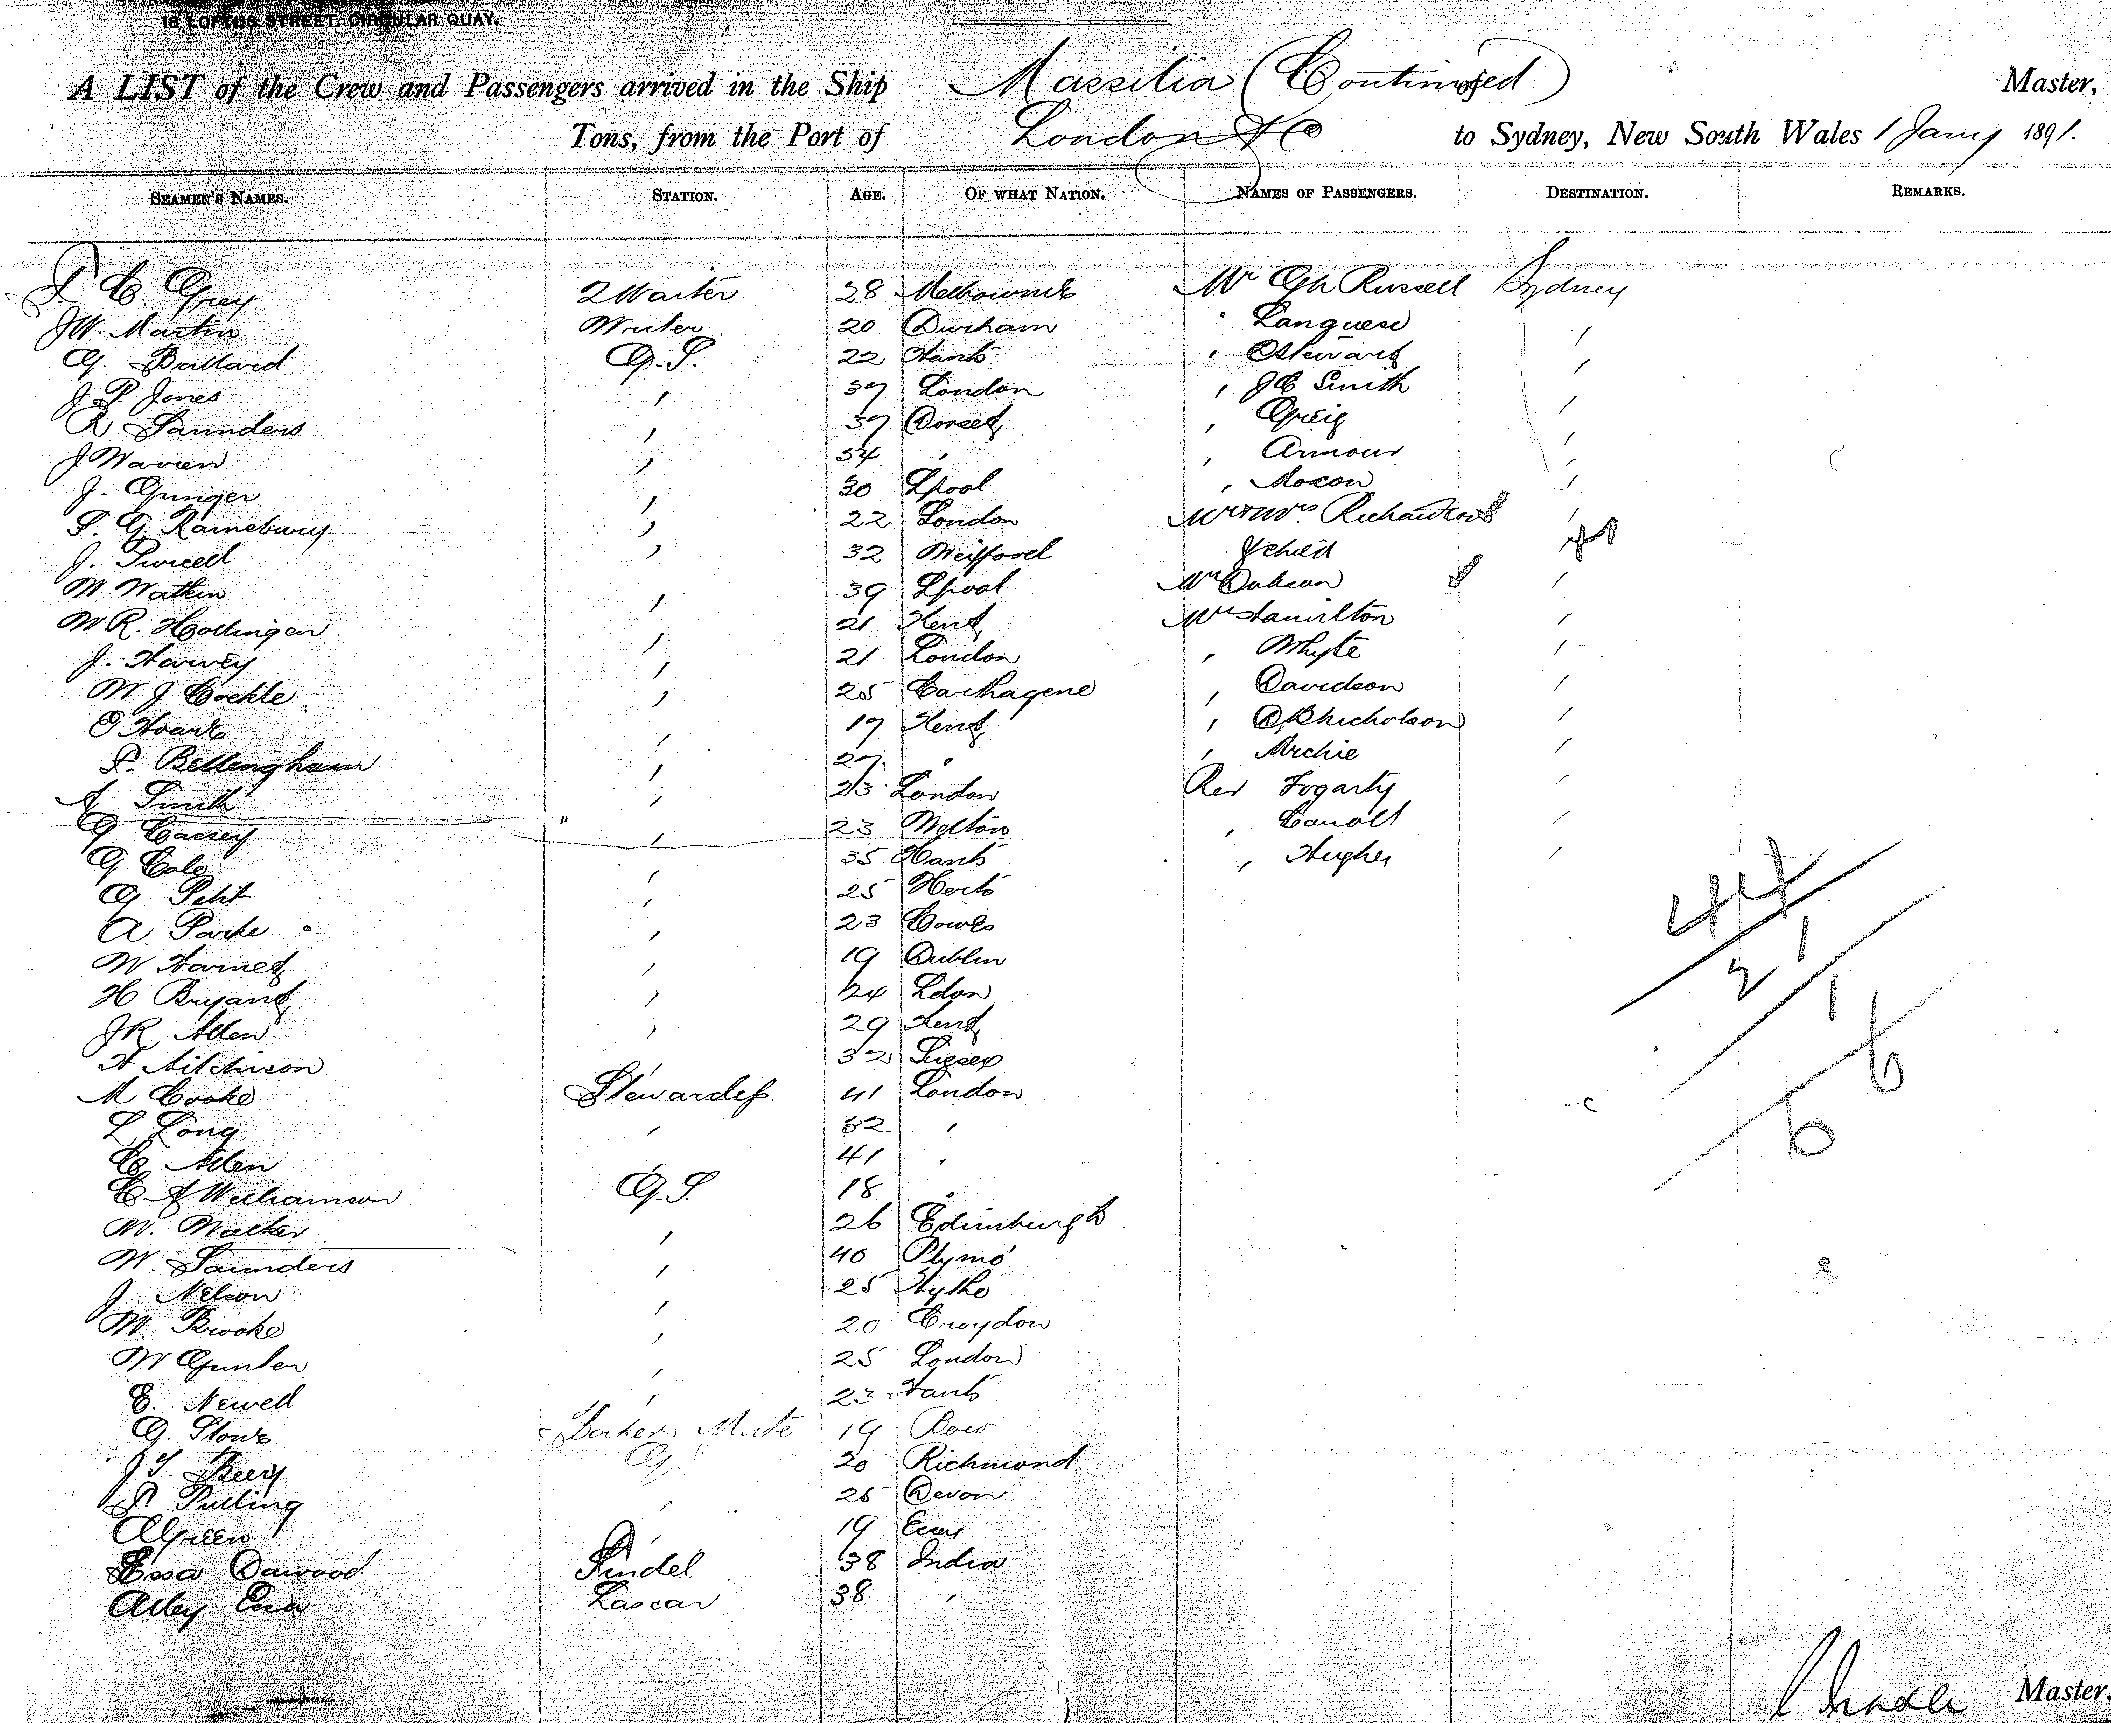 16 LOFTUS STREET, CIRCULAR QUAY.
A LIST of the Crew and Passengers arrived in the Ship Massilia (Continued) Master,
Tons, from the Port of London & Co to Sydney, New South Wales 1 Jany 1891.
SEAMEN'S NAMES. STATION. AGE. OF WHAT NATION. NAMES OF PASSENGERS. DESTINATION. REMARKS.
Grey 2 Waiter 28 Melbourne Mr Russell Sydney
J W. Martin Writer 20 Durham " Languese "
G. Bullard G.S. 22 Hants " Stewart "
J P Jones " 37 London " J C Smith "
R Saunders " 37 Dorset " Greig "
J Warren " 34 " " Armour "
J. Gringer " 30 Lpool " Moxon "
S. G. Ramsbury " 22 London Mr & Mrs Richardson "
J. Purcell " 32 Child
W Watkin " 39 Lpool Mr Dobson "
W R. Hollingar " 21 Kent Mr Hamilton "
J. Harvey " 21 London " Whyte "
W J Cockle " 25 Carthagene " Davidson "
Hoare " 17 Kent " Nicholson "
P. Bellingham " 27 " " Archie "
A Smith " 23 London Rev Fogarty "
G Cassey " 23 Welton " Carroll "
G Cole " 35 Hants " Hughes "
G. Petit " 25 Herts
A. Parke " 23 Cowes
W Harnet " 19 Dublin
H Bryant " 24 Ldon
J R Allen " 29 Kent
H Aitchison " 32 Sussex
M Cooke Stewardess 41 London
L Long " 32 "
E Allen " 41 "
C A Williamson G.S. 18 "
W. Walker " 26 Edinburgh
W. Saunders " 40 Plymo
J Nelson " 25 Hythe
W. Brooke " 20 Croydon
W Gunter " 25 London
E. Newell " 23 Hants
G. Stowe Bakers Mate 19 Bow
J T Beery G 20 Richmond
P Pulling " 25 Devon
A Green " 19
Essa Dawood Tindel 38 India
Alley Essa Lascar 38 "
Master.